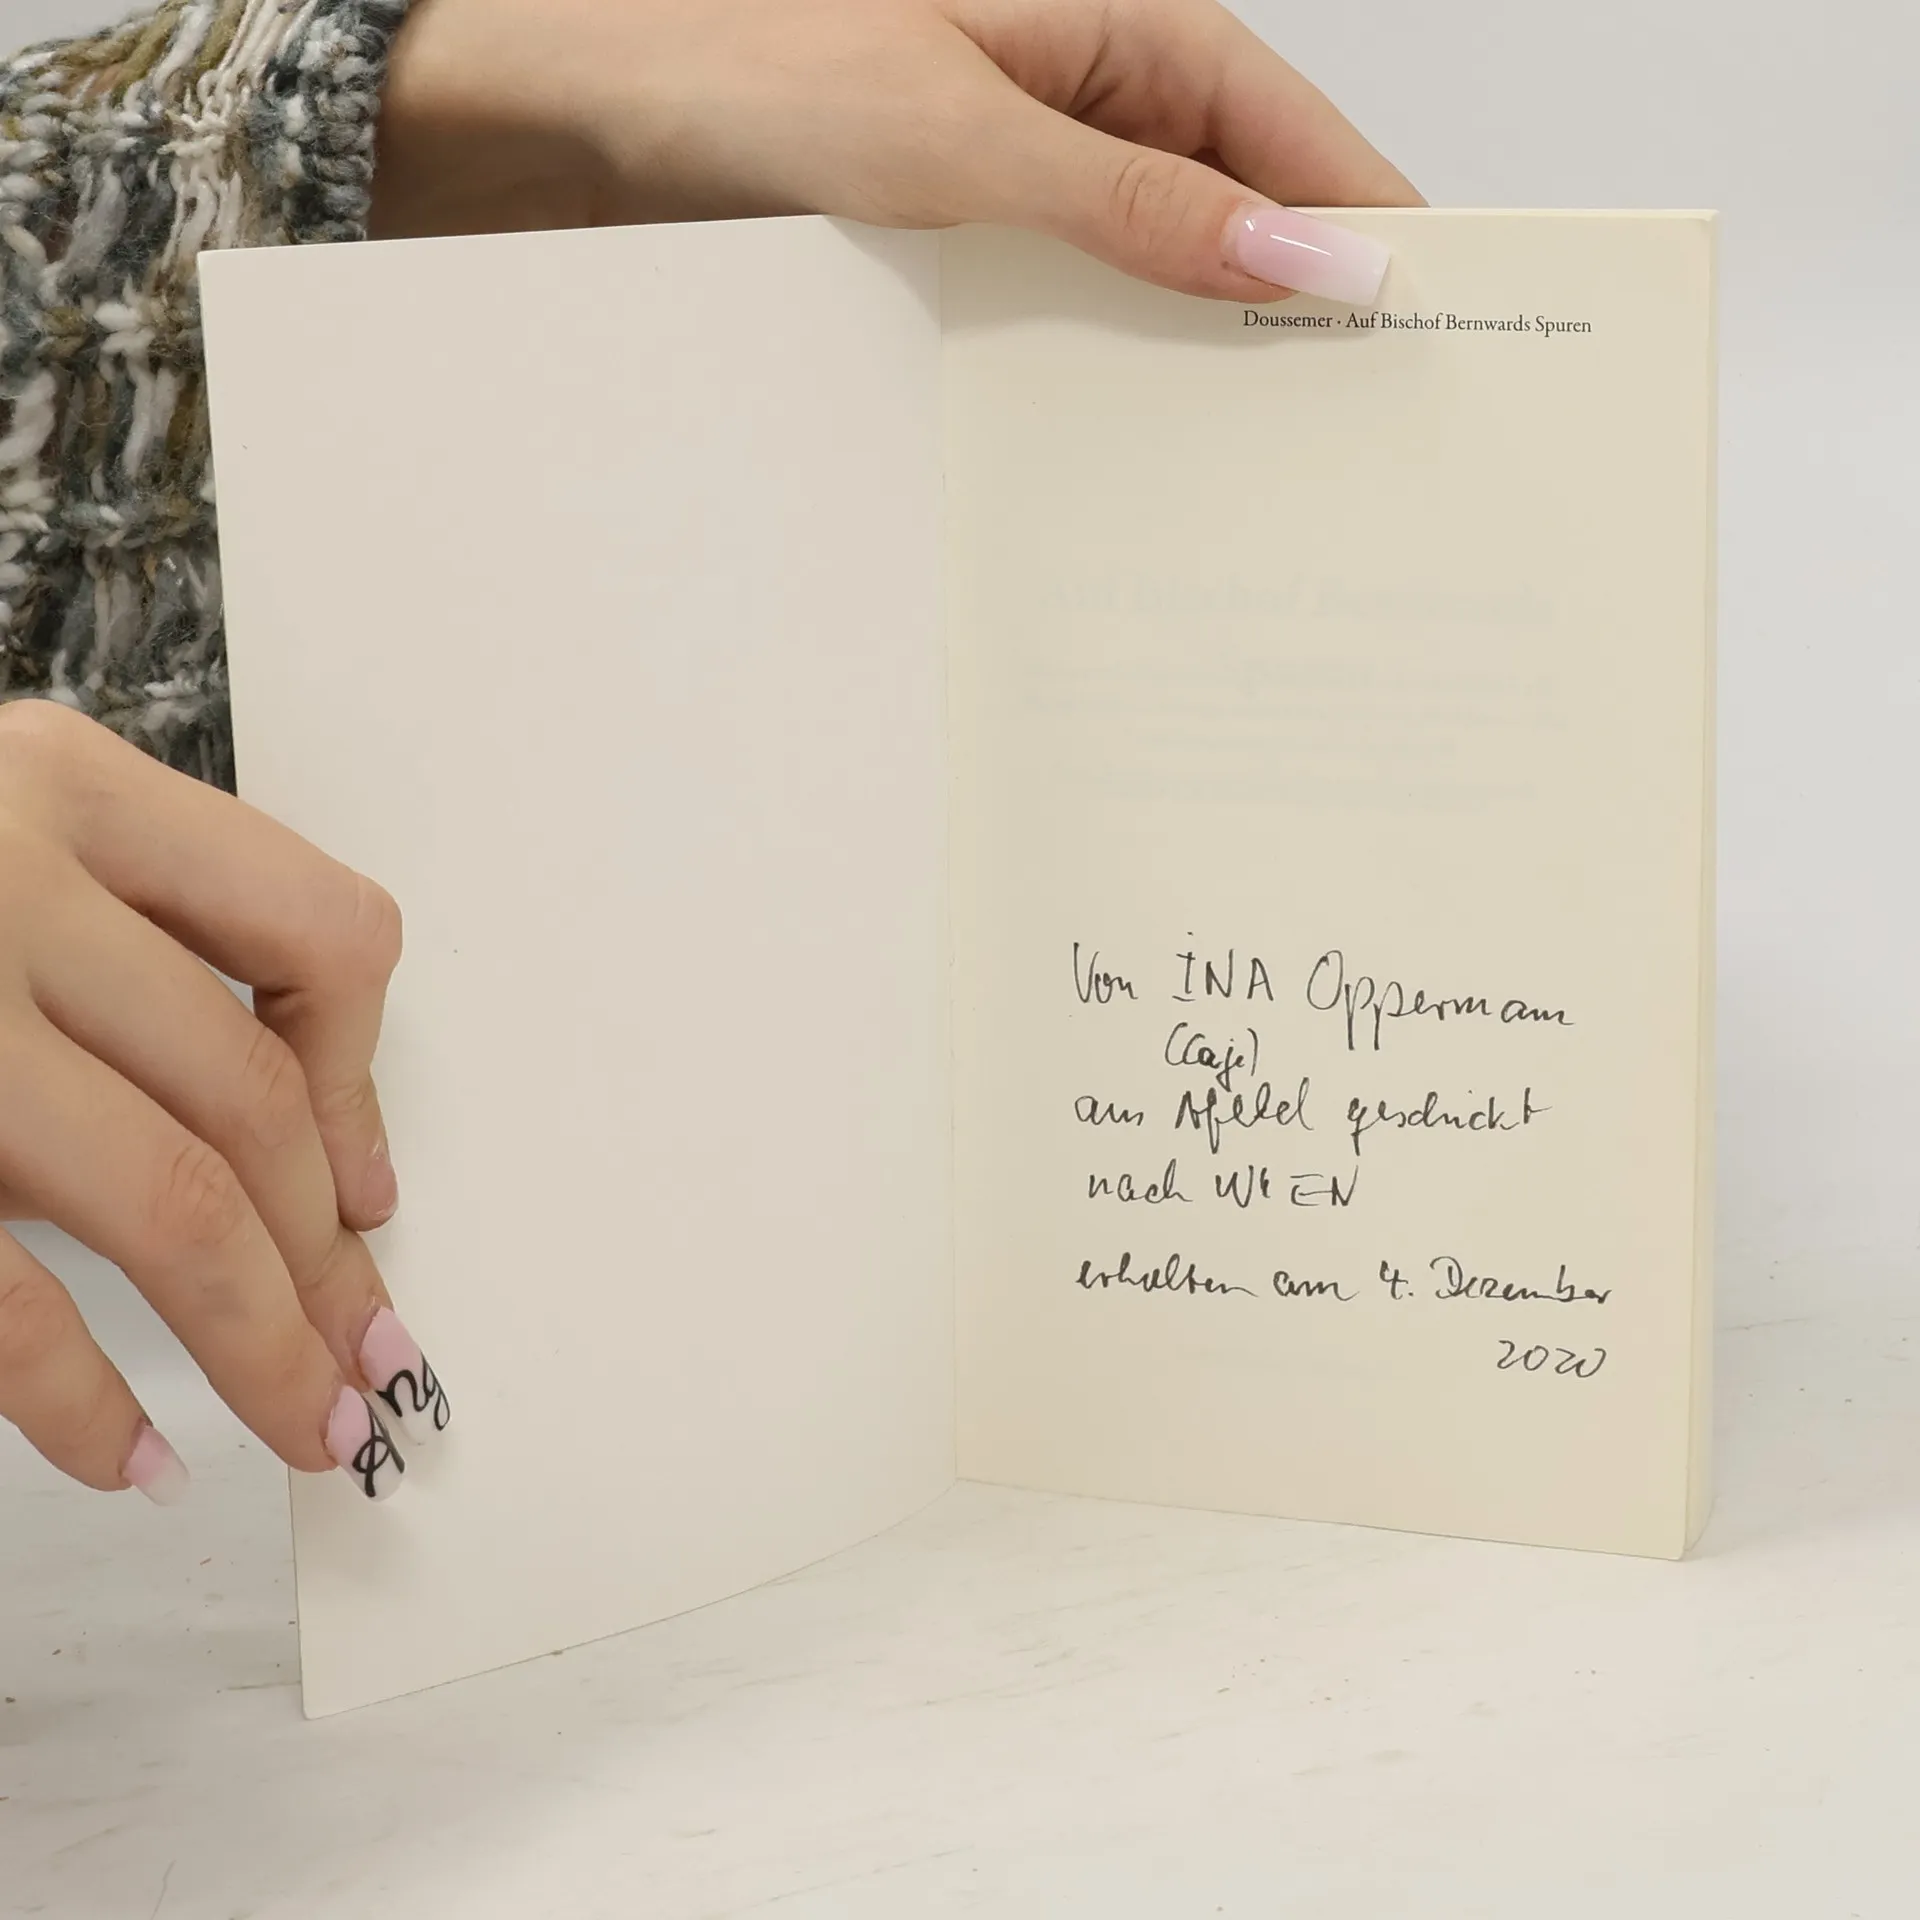 Doussemer · Auf Bischof Bernwards Spuren
Von INA Oppermann
aus Apfeld geschickt
nach WIEN
erhalten am 4. Dezember
2020
Ang